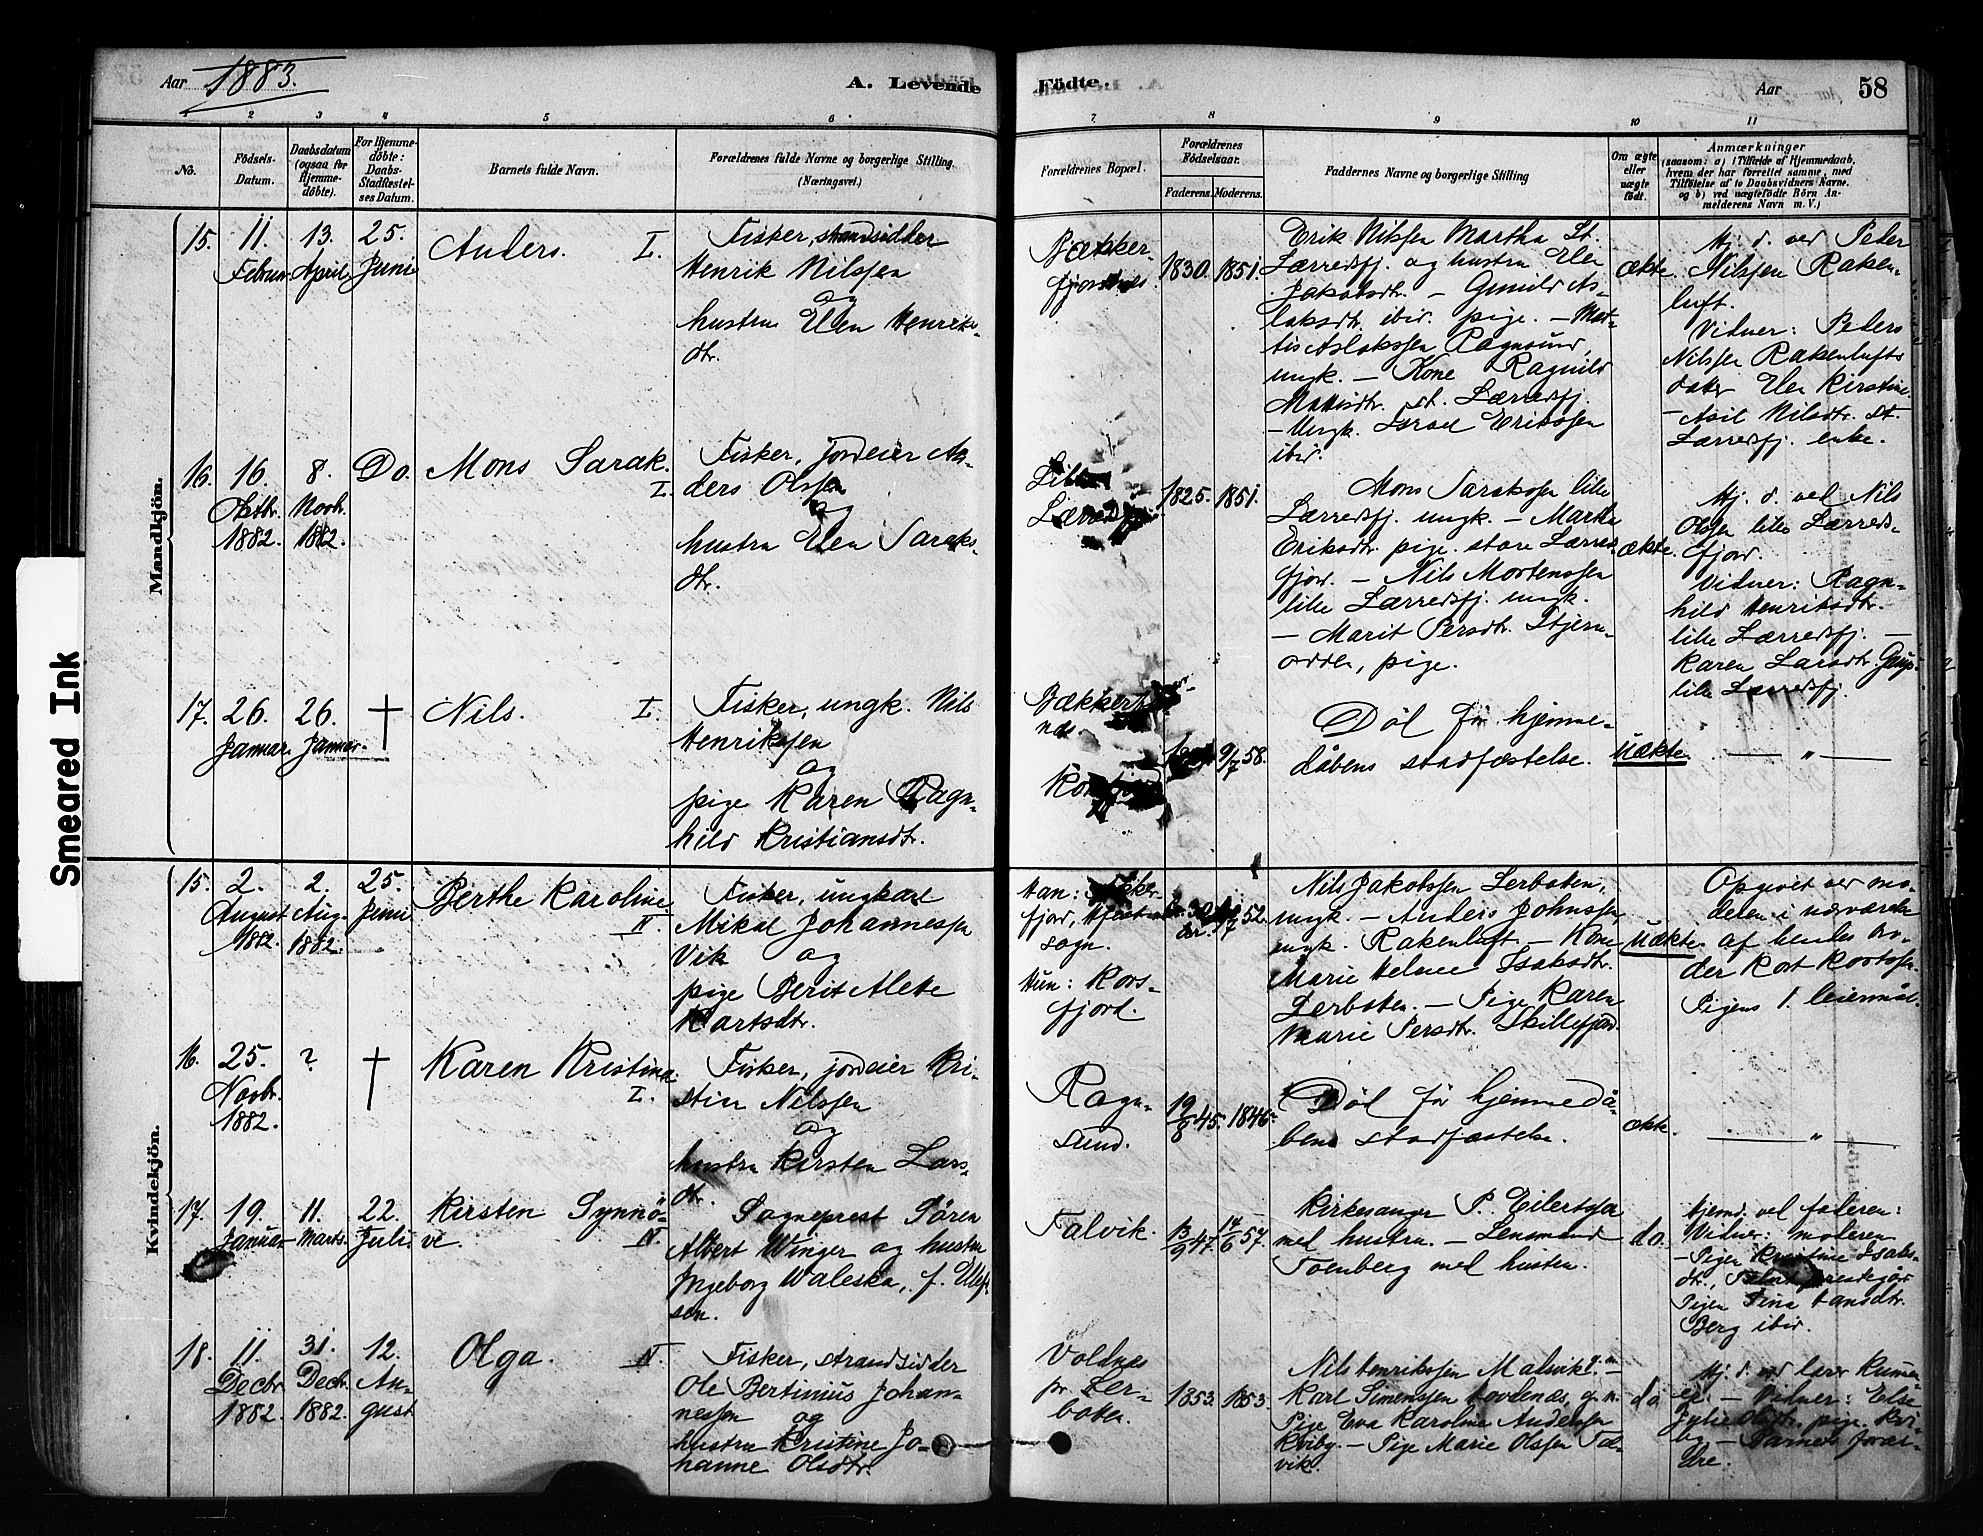 Aar 1883.
A. Levende
Födte.
Aar
58
2
3
4
5
6
7
8
9
10
11
No.
Födsels-
Datum.
Daabsdatum
(ogsaa for
Hjemme-
döbte).
For Hjemme-
döbte:
Daabs-
Stadfæstel-
ses Datum.
Barnets fulde Navn.
Forældrenes fulde Navne og borgerlige Stilling.
(Næringsvei.)
Forældrenes Bopæl.
Forældrenes
Födselsaar.
Faderens.
Moderens.
Faddernes Navne og borgerlige Stilling
Om ægte
eller
uægte
födt.
Anmærkninger
(saasom: a) i Tilfælde af Hjemmedaab,
hvem der har forrettet samme, med
Tilföielse af to Daabsvidners Navne.
og b) ved uægtefödte Börn An-
melderens Navn m. V.)
Smeared Ink
Mandkjön.
15.
11.
Februar
13.
April
25.
Juni
Anders. I.
Fisker, strandsidder
Henrik Nilssen
og
hustru Elen Henriks-
dtr.
Bækker-
fjordnes.
1830.
1851.
Erik Nilssen Martha St.
Lærredsfj. og hustru Elen
Jakobsdtr. – Gunild As-
laksdtr. ibid. pige. – Mat-
tis Aslakssen Ragnsund,
ungk. – Kone Ragnild
Mattisdtr. st. Lærredsfj.
– Ungk. Israel Erikssen
ibid.
ækte.
Hj. d. ved Peder
Nilssen Raken-
luft.
Vidner: Peder
Nilssen Rakenlufts
datter Elen Kirstine.
– Asil Nilsdtr. St.
Lærredsfj. enke.
16.
16.
Oktbr.
1882.
8.
Novbr.
1882.
Do.
Mons Sarak.
I.
Fisker, jordeier An-
ders Olssen
og
hustru Elen Saraks-
dtr.
Lille
Lærredsfj.
1825.
1851.
Mons Sarakssen lille
Lærredsfj. ungk. – Marthe
Eriksdtr. pige. store Lærreds-
fjord. – Nils Mortenssen
lille Lærredsfj. ungk.
– Marit Persdtr. Stjern-
odden, pige.
ækte.
Hj. d. ved Nils
Olssen lille Lærreds-
fjord.
Vidner: Ragn-
hild Henriksdtr.
lille Lærredsfj. –
Karen Larsdtr.
lille Lærredsfj.
17.
26.
Januar.
26.
Januar.
†
Nils. I.
Fisker, ungk. Nils
Henrikssen
og
pige Karen Ragn-
hild Kristiansdtr.
Bækker
nes.
9/7 58.
Död før hjemme-
dåbens stadfæstelse.
Uækte.
— „ —
Kvindekjön.
15.
2.
August
1882.
2.
Aug.
1882.
25.
Juni
Berthe Karoline
II.
Fisker, ungkarl
Mikal Johannessen
Vik og
pige Berit Alete
Kortsdtr.
Han:
fjord,
sogn.
Hun: Kors-
fjord.
52.
Nils Jakobssen Lerbotten,
ungk. – Anders Johnssen
ungk. Rakenluft. – Kone
Marie Helene Isaksdtr.
Lerbotten. – Pige Karen
Marie Persdtr. Skillefjord.
Uækte
Opgivet ved mo-
deren i nærværelse
af hendes bro-
der Kort Kortssen.
Pigens 1. leiermål.
16.
25.
Novbr.
1882.
?
†
Karen Kristina
I.
Fisker, jordeier Kri-
stian Nilssen
og
hustru Kirsten Lars-
dtr.
Ragn-
sund.
19/8 45.
1846.
Död før hjemmedå-
bens stadfæstelse.
ækte.
— „ —
17.
19.
Januar
11.
Marts.
22.
Juli.
Kirsten Synnö-
ve. N.
Sogneprest Sören
Albert Winger og hustru
Ingeborg Waleska, f. Ulef-
sen.
Talvik.
13/9 47.
14/6 57.
Kirkesanger P. Eilertssen
med hustru. – Lensmand
Toenberg med hustru.
do.
Hjemd. ved faderen:
Vidner: moderen
– Pigen Kristine Isaks-
dtr. Talvik prestegård
Pigen Tina Hansdtr.
Berg ibid.
18.
11.
Decbr.
1882.
31.
Decbr.
1882.
12.
Au-
gust
Olga. N.
Fisker, strandsidder
Ole Bertinius Johan-
nessen og
hustru Kristine Jo-
hanne Olsdtr.
Voldnes
pr. Ler-
botten.
1853.
1853.
Nils Henrikssen Malvik g.m.
Karl Simonssen Hovdenæs, g.m.
Pige Eva Karoline Andersen
Kviby. – Pige Marie Olssen Tal-
vik.
do
Hj. d. ved lærer
– Vidner: Else
Julie Olsdtr. pige. Kvi-
by – Barnets foræl-
dre.